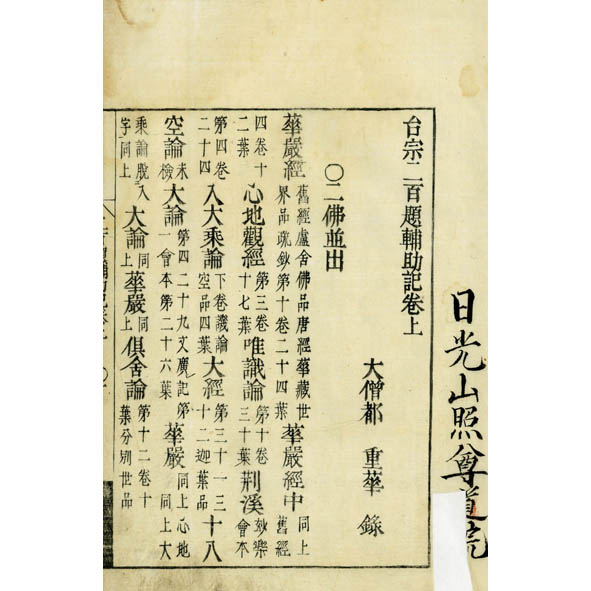 日光山照尊道院
台宗二百題輔助記卷上
大僧都 重華 錄
〇二佛並出
華嚴經 舊經盧舍佛品唐經華藏世界品疏鈔第十卷二十四葉 華嚴經中 同上舊經
四卷十二葉 心地觀經 第三卷十七葉 唯識論 第十卷三十葉 荊溪 妙樂會本
第四卷二十四 入大乘論 下卷譏論空品四葉 大經 第三十一十三十二迦葉品 十八
空論 未檢 大論 第四二十九丈廣記第一會本第二十六葉 華嚴 同上心地同上大
乘論脫入字同上 大論 同上 華嚴 同上 俱舍論 第十二卷十葉分別世品